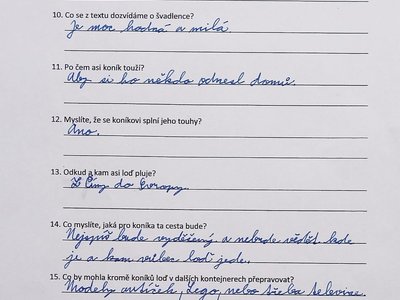 10. Co se z textu dozvídáme o švadlence?
Je moc hodná a milá.
11. Po čem asi koník touží?
Aby si ho někdo odnesl domů.
12. Myslíte, že se koníkovi splní jeho touhy?
Ano.
13. Odkud a kam asi loď pluje?
Z Číny do Evropy.
14. Co myslíte, jaká pro koníka ta cesta bude?
Nejspíš bude vyděšený a nebude vědět kde
je a kam vůbec loď jede.
15. Co by mohla kromě koníků loď v dalších kontejnerech přepravovat?
Modely autíček, Lego, nebo třeba televize.